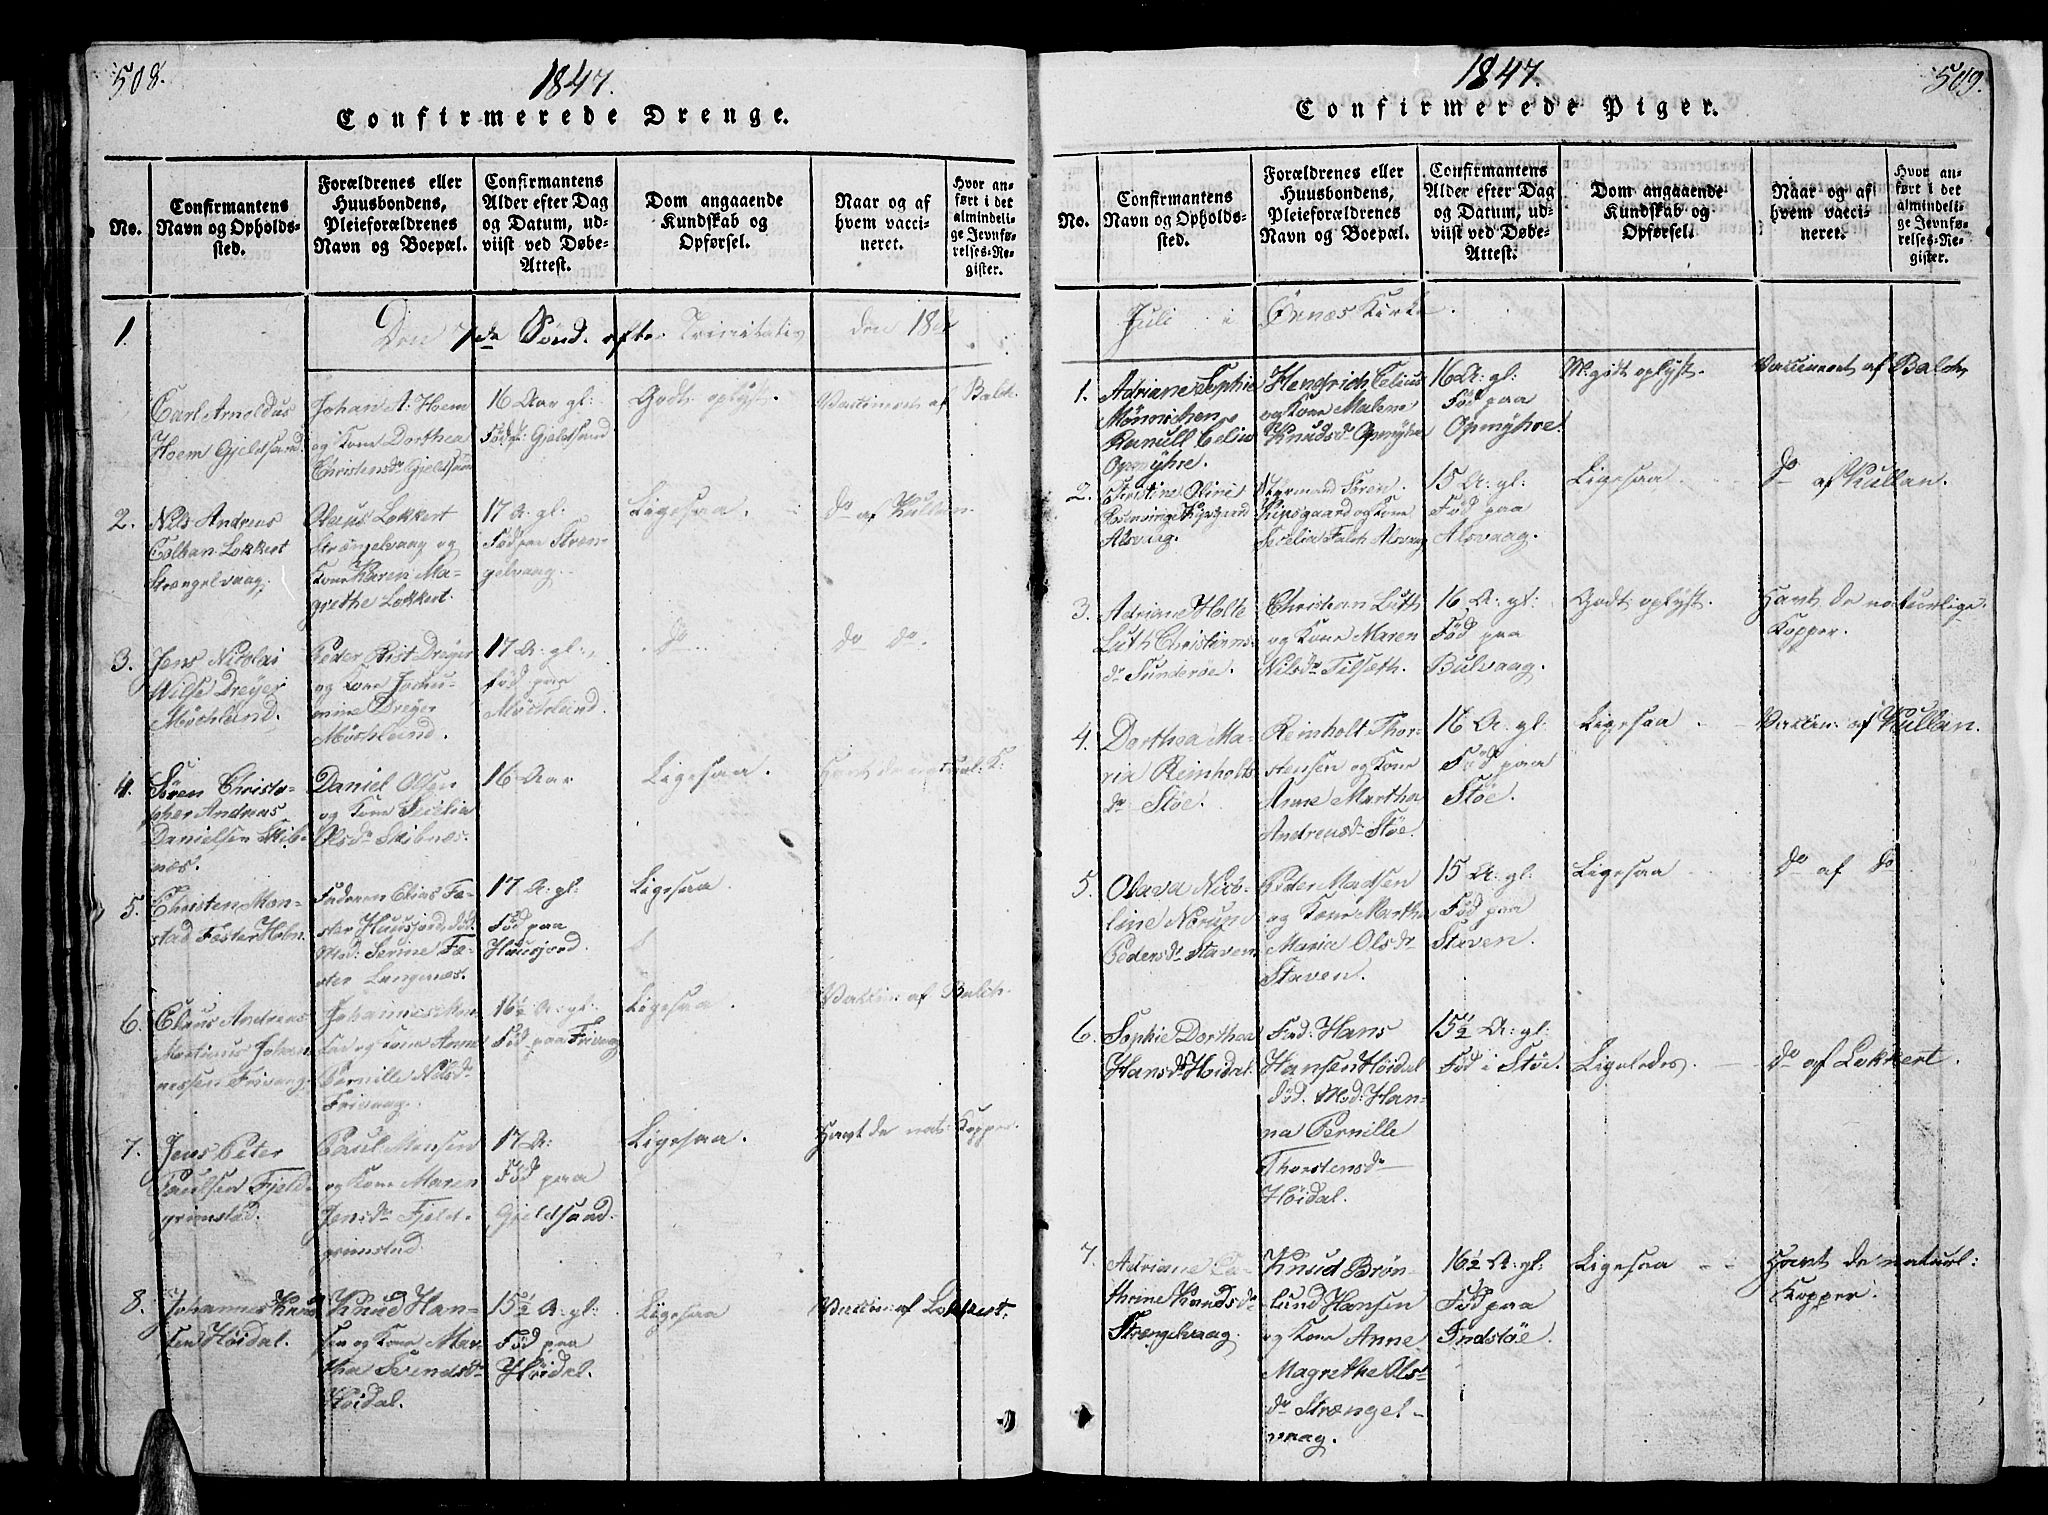 508.
1847.
Confirmerede Drenge.
No.
Confirmantens
Navn og Opholds-
sted.
Forældrenes eller
Huusbondens,
Pleieforældrenes
Navn og Boepæl.
Confirmantens
Alder efter Dag
og Datum, ud-
viist ved Døbe-
Attest.
Dom angaaende
Kundskab og
Opførsel.
Naar og af
hvem vacci-
neret.
Hvor an-
ført i det
almindeli-
ge Jevnfø-
relses-Re-
gister.
1.
Den 7de Sønd. efter Trinitatis den 18de
Carl Arnoldus
Hoem Gjeldsand.
Johan A. Hoem
og Kone Dorthea
Christensdr Gjeldsand
16 Aar gl:
Født Gjeldsand
Godt oplyst.
Vaccineret af Balch.
2.
Nils Andreas
Lokkert
Strængelvaag.
Olaus Lokkert
Strængelvaag og
Kone Karen Ma-
grethe Lokkert.
17 A: gl:
Fød paa Stren-
gelvaag.
Ligesaa.
do af Kullan.
3.
Jens Nicolai
Wilse Dreyer
Møchland.
Peder Rist Dreyer
og Kone Jochu-
mine Dreyer
Møchland.
17 A: gl:
fød paa
Møchland.
do
do do.
4.
Søren Christo-
pher Andreas
Danielsen Skib-
næs.
Daniel Olsen
og Kone Secilia
Olsdr Skibnæs.
16 Aar
Ligesaa.
Havt de natural: K:
5.
Christen Mon-
stad Fester Holm.
Faderen Elias Fæ-
ster Huusjord, død.
Mod: Serine Fæ-
ster Langenæs.
17 A: gl:
Fød paa
Huusjord.
Ligesaa.
6.
Claus Andreas
Martinus Johan-
nessen Frivaag.
Johannes
og Kone Anne
Pernille Nilsdr
Frivaag.
16½ A: gl:
Fød paa Frivaag
Ligesaa.
Vaccin: af Balch.
7.
Jens Peter
Paulsen Fjeld-
grimstad.
Paul Monsen
og Kone Maren
Jensdr Fjeld-
grimstad
17 A:
Fød paa
Gjeldsand.
Ligesaa.
Havt de nat: Kopper.
8.
Johannes Knud-
sen Høidal.
Knud Han-
sen og Kone Mar-
tha Svendsdr
Høidal.
15½ A: gl:
Fød paa
Høidal.
Ligesaa
Vaccin: af Lokkert.
509.
1847.
Confirmerede Piger.
No.
Confirmantens
Navn og Opholds-
sted.
Forældrenes eller
Huusbondens,
Pleieforældrenes
Navn og Boepæl.
Confirmantens
Alder efter Dag
og Datum, ud-
viist ved Døbe-
Attest.
Dom angaaende
Kundskab og
Opførsel.
Naar og af
hvem vacci-
neret.
Hvor an-
ført i det
almindelig-
ge Jevnfø-
relses-Re-
gister.
Juli i Øxnæs Kirke.
1.
Adriane Sophie
Mønnichen
Ranull Celius
Opmyhre.
Hendrich Celius
og Kone Malene
Knudsdr Opmyhre
16 A: gl:
Fød paa
Opmyhre.
M: godt oplyst.
Vaccineret af Balch
2.
Christine Oline
Rosenvinge Kipsgaard
Alsvaag.
Styrmand Søren
Kipsgaard og Kone
Secelia Falch Alsvaag
15 A: gl:
Fød paa
Alsvaag.
Ligesaa
do af Kullan.
3.
Adriane Holte
Luth Christians-
dr Sunderøe.
Christian Luth
og Kone Maren
Nilsdr Tilseth.
16 A: gl:
Fød paa
Bulvaag.
Godt oplyst.
Havt de naturlige
Kopper.
4.
Dorthea Ma-
ria Reinholts-
dr Støe.
Reinholt Thor-
stensen og Kone
Anne Martha
Andreasdr Støe.
16 A: gl:
Fød paa
Støe.
Ligesaa
Vaccin: af Kullan.
5.
Olava Nico-
line Norum
Pedersdr Staven
Peder Madsen
og Kone Martha
Maria Olsdr
Staven.
15 A: gl:
Fød paa
Staven.
Ligesaa
do af do
6.
Sophie Dorthea
Hansdr Høidal.
Fad: Hans
Hansen Høidal
død. Mod: Han-
na Pernille
Thorstensdr
Høidal.
15½ A: gl:
Fød i Støe.
Ligeledes.
do af Lokkert.
7.
Adriane Ca-
thrine Knudsdr
Strængelvaag.
Knud Brøn-
lund Hansen
og Kone Anne
Magrethe Ols-
dr Strængel-
vaag.
16½ A: gl:
Fød paa
Indstøe.
Ligesaa
Havt de naturl:
Kopper.